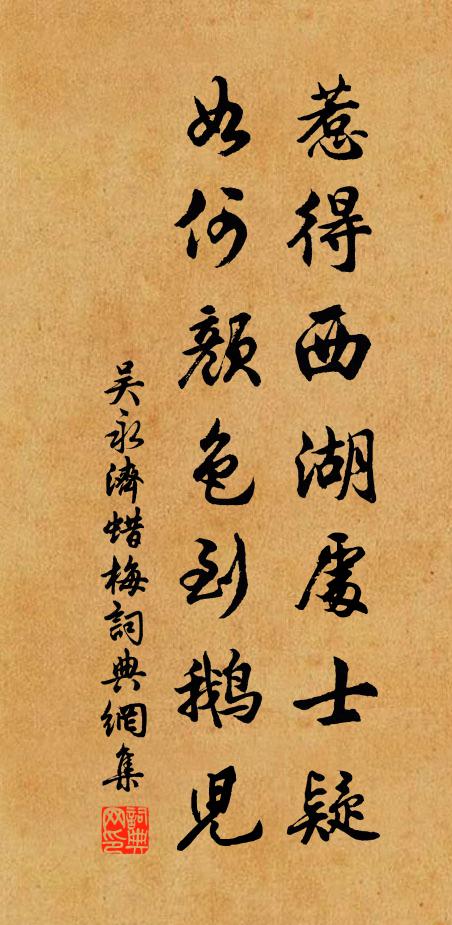 惹得西湖處士疑
如何顏色到鵝兒
吳永濟蜡梅詞典網集
詞典網印